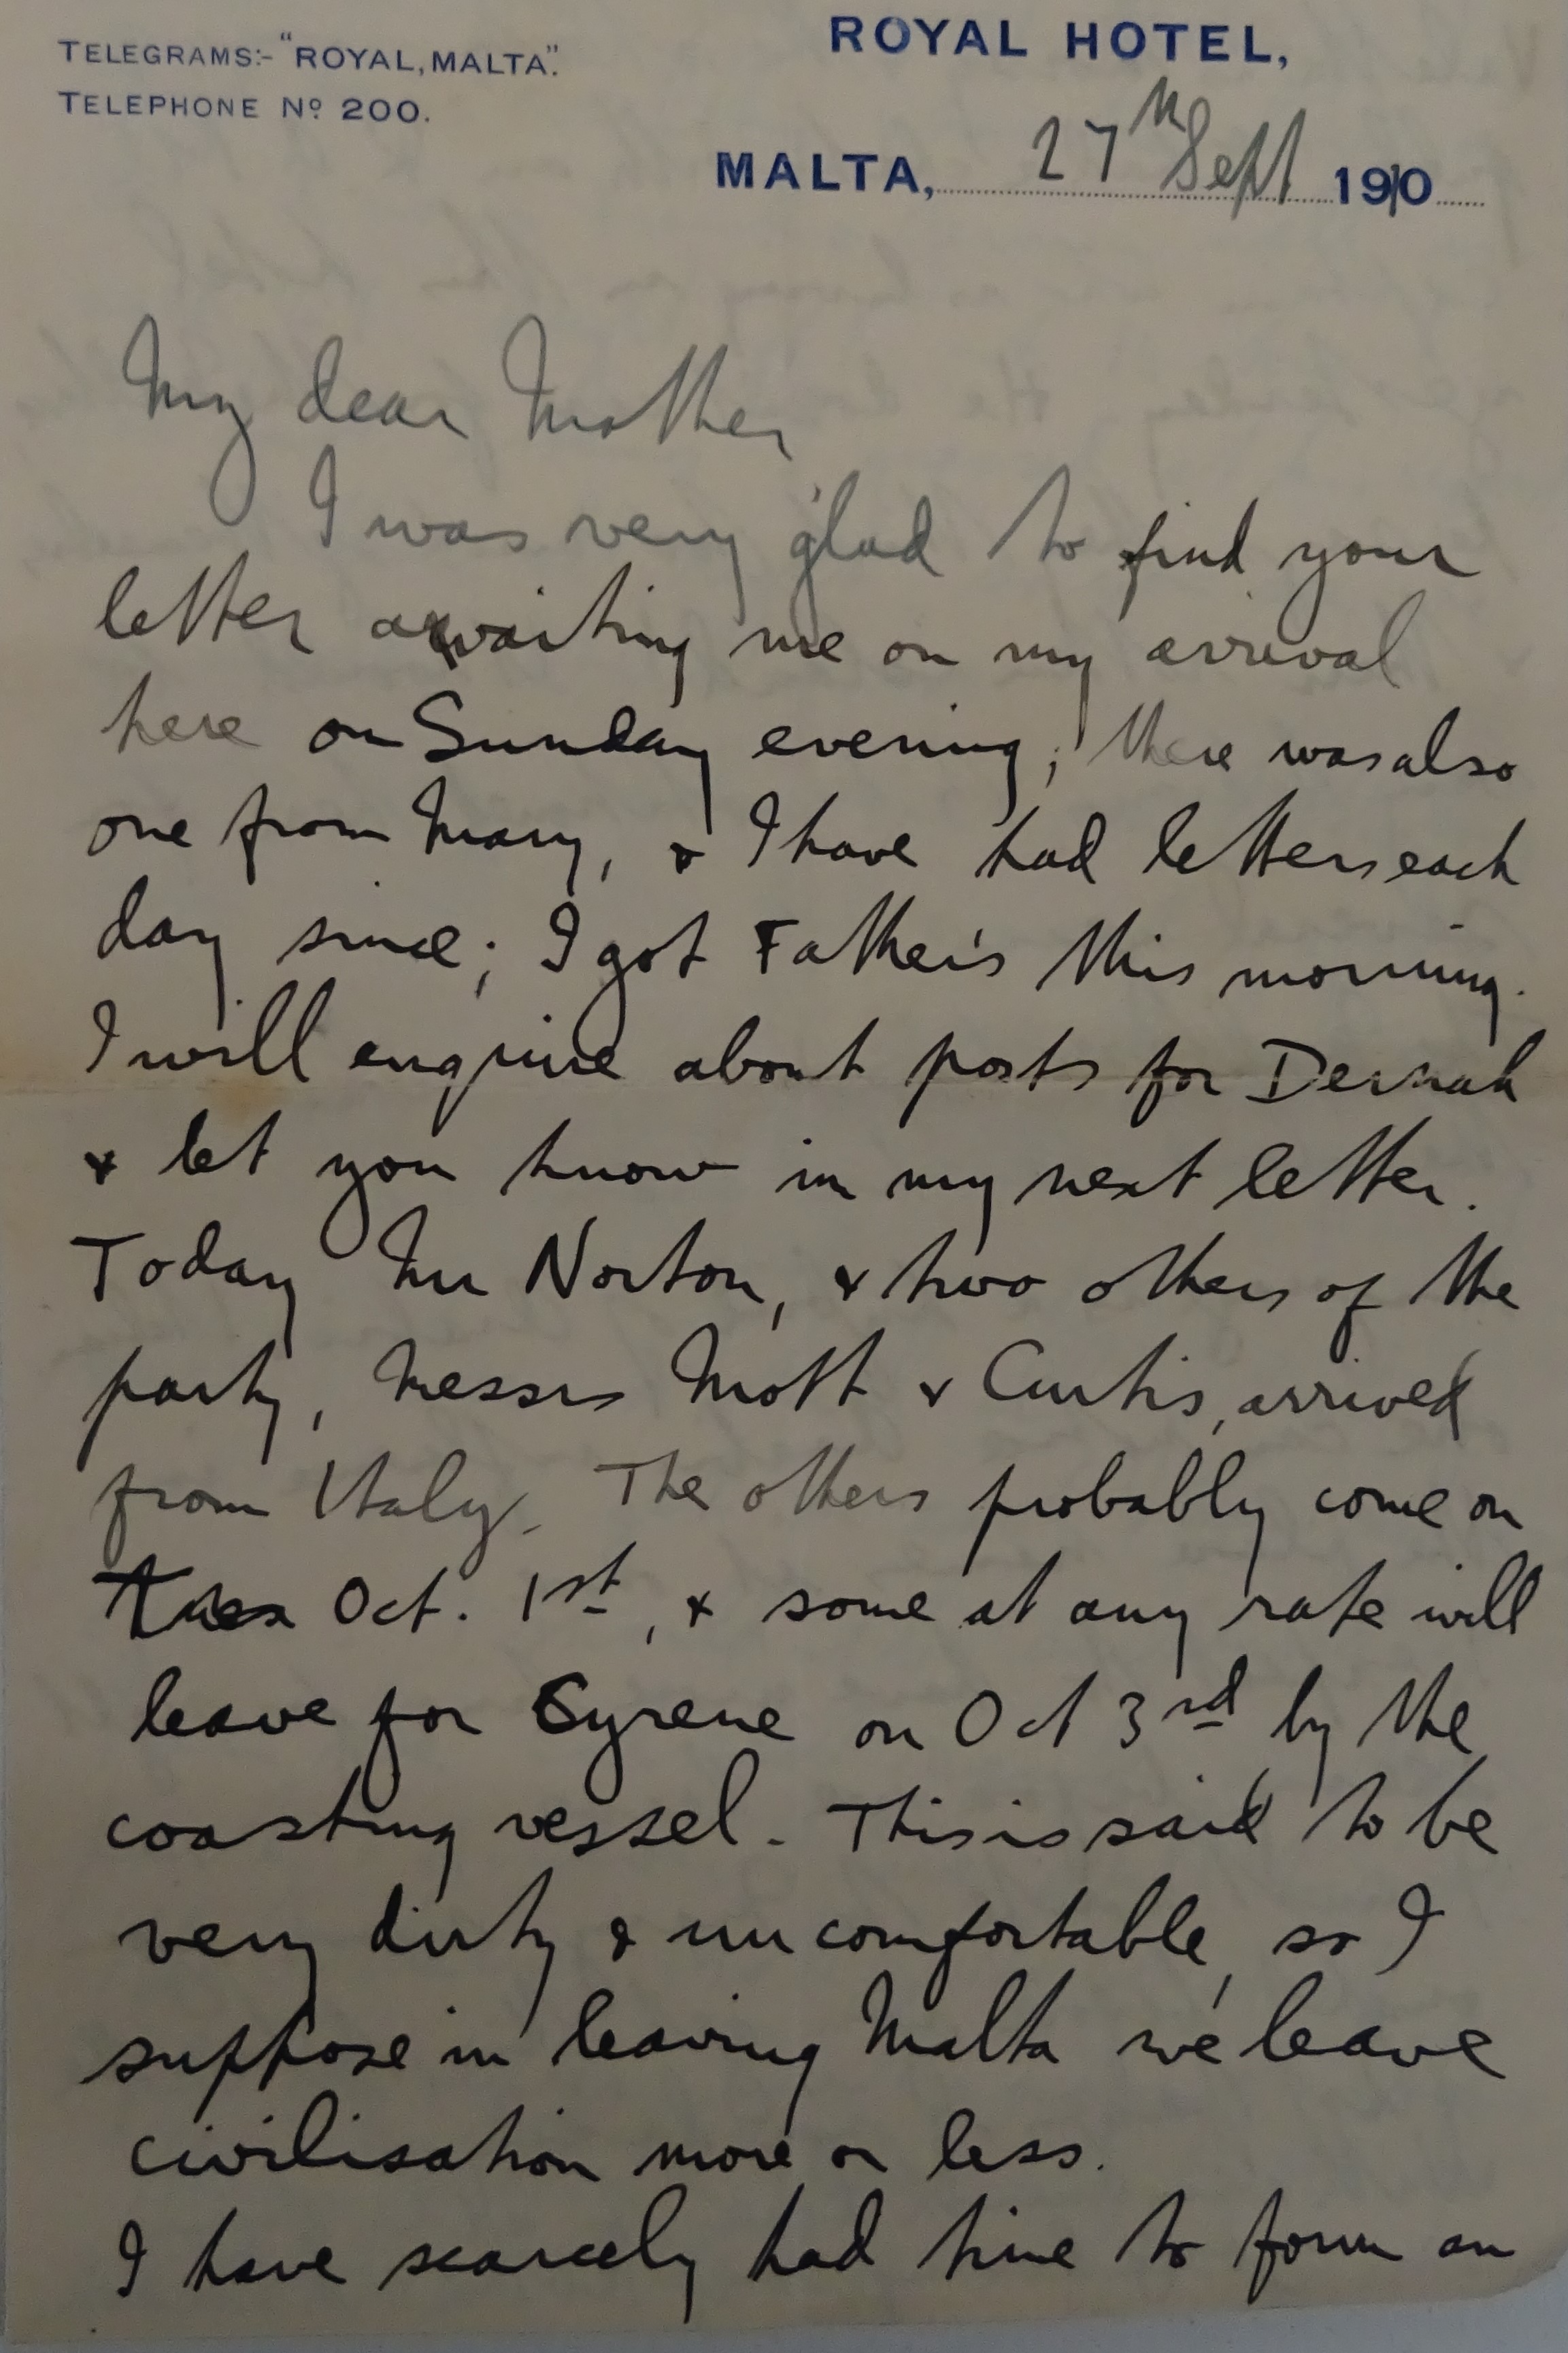 TELEGRAMS:- "ROYAL, MALTA".
TELEPHONE Nº 200.
ROYAL HOTEL,
MALTA, 27th Sept 1910
My dear Mother
I was very glad to find your
letter awaiting me on my arrival
here on Sunday evening; there was also
one from Mary, & I have had letters each
day since; I got Father's this morning.
I will enquire about posts for Dernah
& let you know in my next letter.
Today Mr Norton, & two others of the
party, Messrs Mott & Curtis, arrived
from Italy. The others probably come on
Oct. 1st, & some at any rate will
leave for Cyrene on Oct 3rd by the
coasting vessel. This is said to be
very dirty & uncomfortable, so I
suppose in leaving Malta we leave
civilisation more or less.
I have scarcely had time to form an